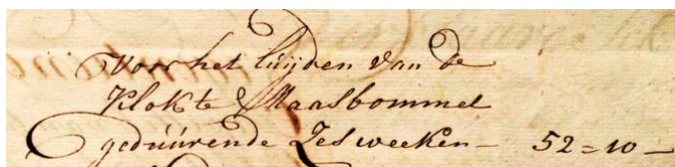 Voor het luijden van de
Klok te Maasbommel
geduurende Zes weeken — 52 = 10 —